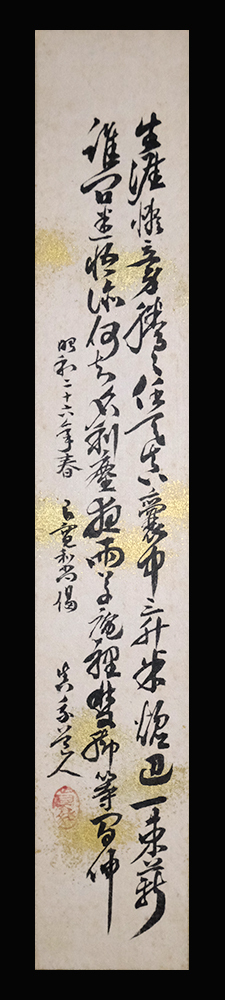 生涯懶立身騰々任天真囊中三升米爐辺一束薪
誰問迷悟跡何知名利塵夜雨草庵裡雙脚等間伸
昭和二十六年春 良寛和尚偈 道人